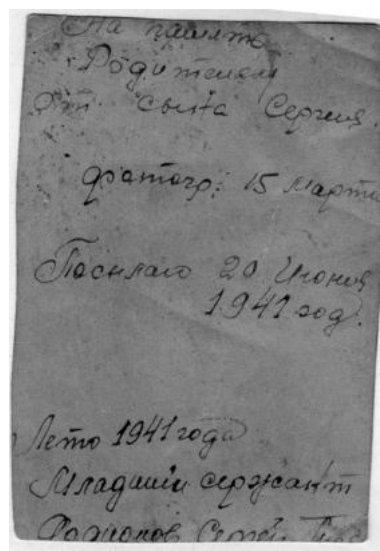 На память
Родителям
От сына Сергея.
фотогр. 15 марта
Посылаю 20 Июня
1941 год.
Лето 1941 года
Младший сержант
Сергей